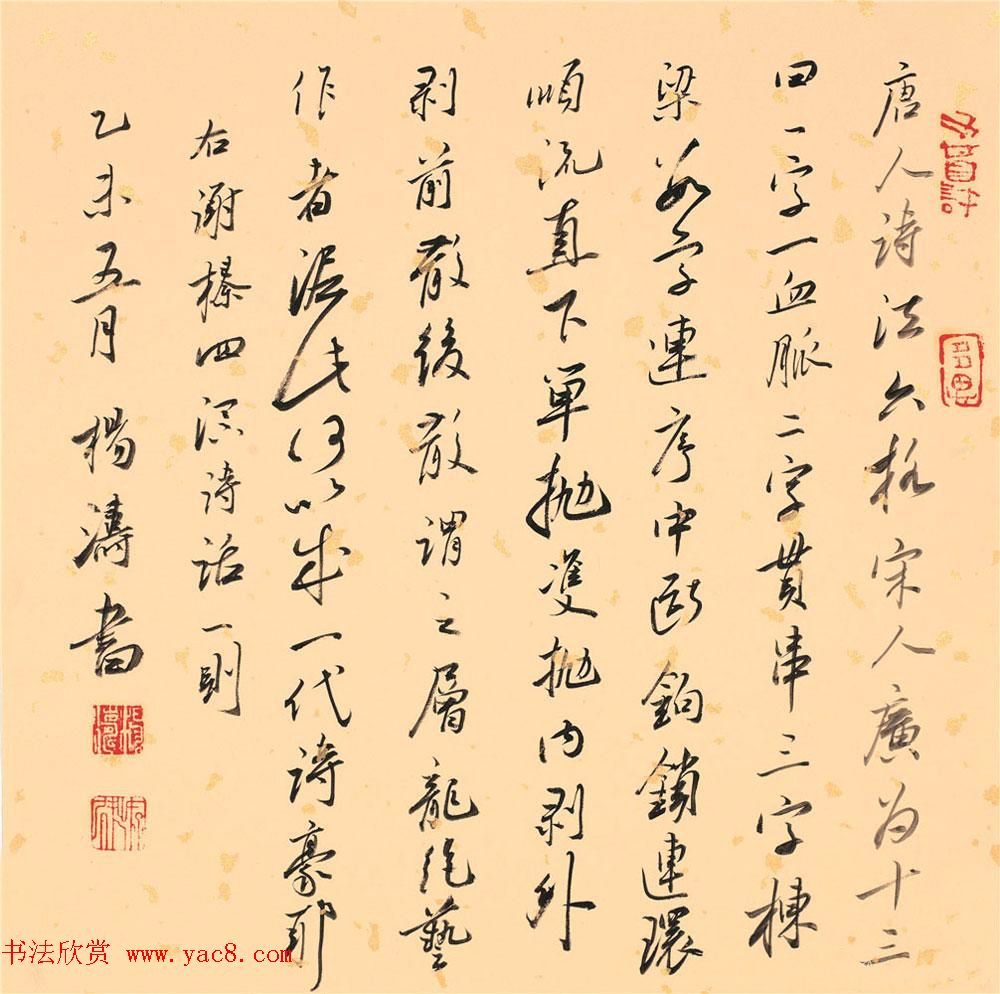 唐人詩法六格宋人廣為十三
曰一字一血脈二字貫串三字棟
梁數字連序中斷鉤鎖連環
順流直下單拋雙拋內剝外
剝前散後散謂之層龍絕藝
作者泥此何以成一代詩豪耶
右謝榛四溟詩話一則
乙未五月 楊濤書
书法欣赏 www.yac8.com